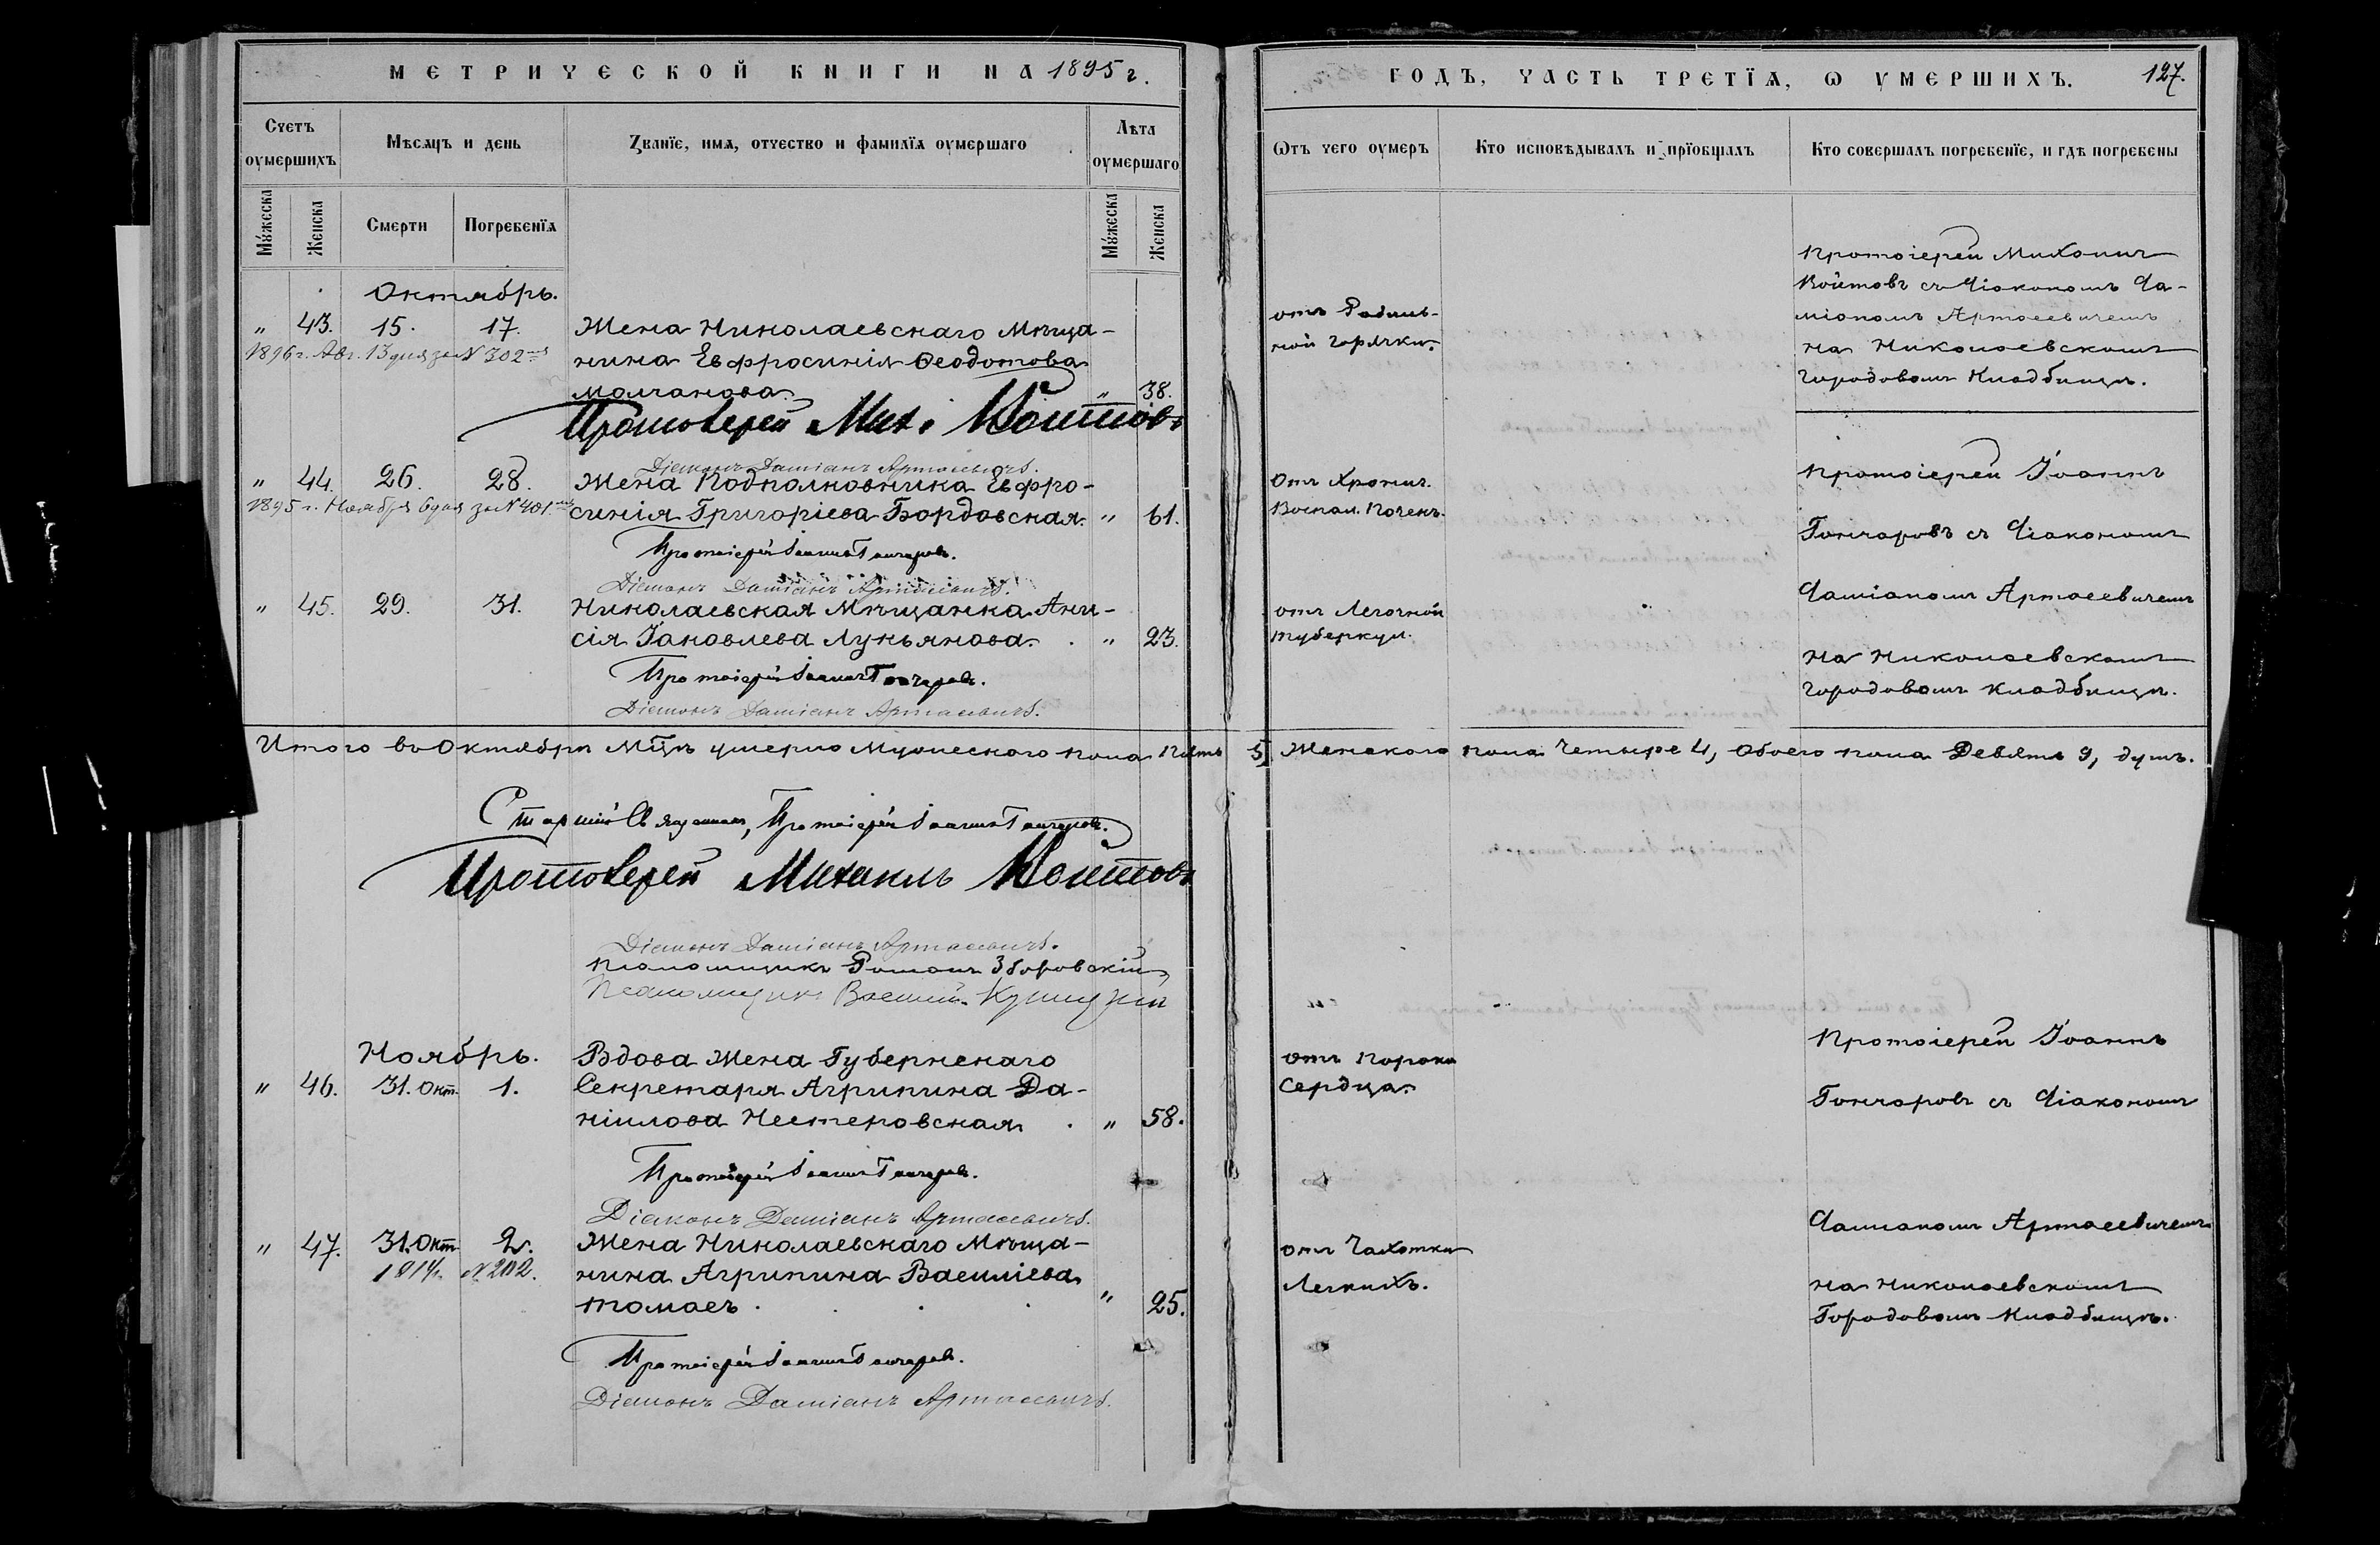 МЕТРИЧЕСКОЙ КНИГИ НА 1895 г.
Счетъ оумершихъ
Мѣсяцъ и день
Званіе, имя, отчество и фамилія оумершаго
Лѣта оумершаго
Мужеска
Женска
Смерти
Погребенія
Мужеска
Женска
Октябрь.
" 43. 15. 17. Жена Николаевскаго Мѣща-
1896 г. Авг. 13 дня за № 302
нина Евфросинія Ѳеодотова
Молчанова. " 38.
Протоіерей Мих. Войтовъ
Діаконъ Даміанъ Артасевичъ.
" 44. 26. 28. Жена Подполковника Евфро-
1895 г. Ноября 6 дня за № 401
синія Григоріева Бордовская. " 61.
Протоіерей Іоаннъ Гончаровъ.
Діаконъ Даміанъ Артасевичъ.
" 45. 29. 31. Николаевская Мѣщанка Ани-
сія Іаковлева Лукьянова. " 23.
Протоіерей Іоаннъ Гончаровъ.
Діаконъ Даміанъ Артасевичъ.
Итого въ Октябрѣ Мцѣ умерло Мужескаго пола пять
Старшій Священникъ, Протоіерей Іоаннъ Гончаровъ.
Протоіерей Михаилъ Войтовъ
Діаконъ Даміанъ Артасевичъ.
Псаломщикъ Романъ Зборовскій
Псаломщикъ Василій
Ноябрь. Вдова Жена Губернскаго
" 46. 31. Окт. 1. Секретаря Агрипина Да-
ніилова Нестеровская. " 58.
Протоіерей Іоаннъ Гончаровъ.
Діаконъ Даміанъ Артасевичъ.
" 47. 31. Окт. 2. Жена Николаевскаго Мѣща-
№ 202. нина Агрипина Василіева
Томаеъ. " 25.
Протоіерей Іоаннъ Гончаровъ.
Діаконъ Даміанъ Артасевичъ.
ГОДЪ, ЧАСТЬ ТРЕТІЯ, Ѡ УМЕРШИХЪ. 127.
Ѿтъ чего оумеръ
Кто исповѣдывалъ и пріобщалъ
Кто совершалъ погребеніе, и гдѣ погребены
отъ Родиль-
ной горячки.
Протоіерей Михаилъ
Войтовъ съ Діакономъ Да-
міаномъ Артасевичемъ
на Николаевскомъ
городовомъ кладбищѣ.
Отъ Хронич.
Воспал. Почекъ.
Протоіерей Іоаннъ
Гончаровъ съ Діакономъ
Даміаномъ Артасевичемъ
отъ Легочной
туберкул.
на Николаевскомъ
городовомъ кладбищѣ.
5, Женскаго пола Четыре 4, Обоего пола Девять 9, душъ.
отъ порока
Сердца.
Протоіерей Іоаннъ
Гончаровъ съ Діакономъ
Даміаномъ Артасевичемъ
отъ Чахотки
Легкихъ.
на Николаевскомъ
Городовомъ кладбищѣ.